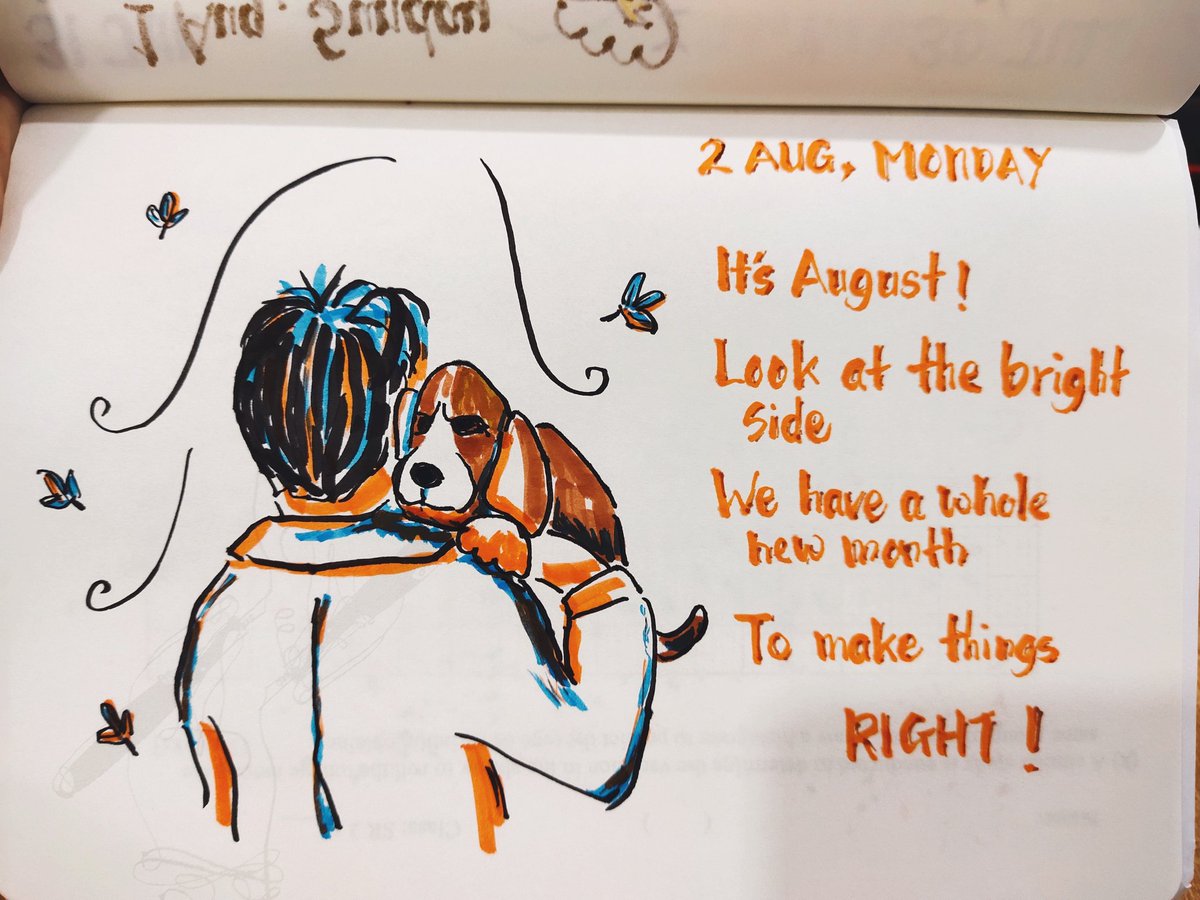 1 Aug. Sunday
2 AUG, MONDAY
It's August!
Look at the bright
side
We have a whole
new month
To make things
RIGHT!